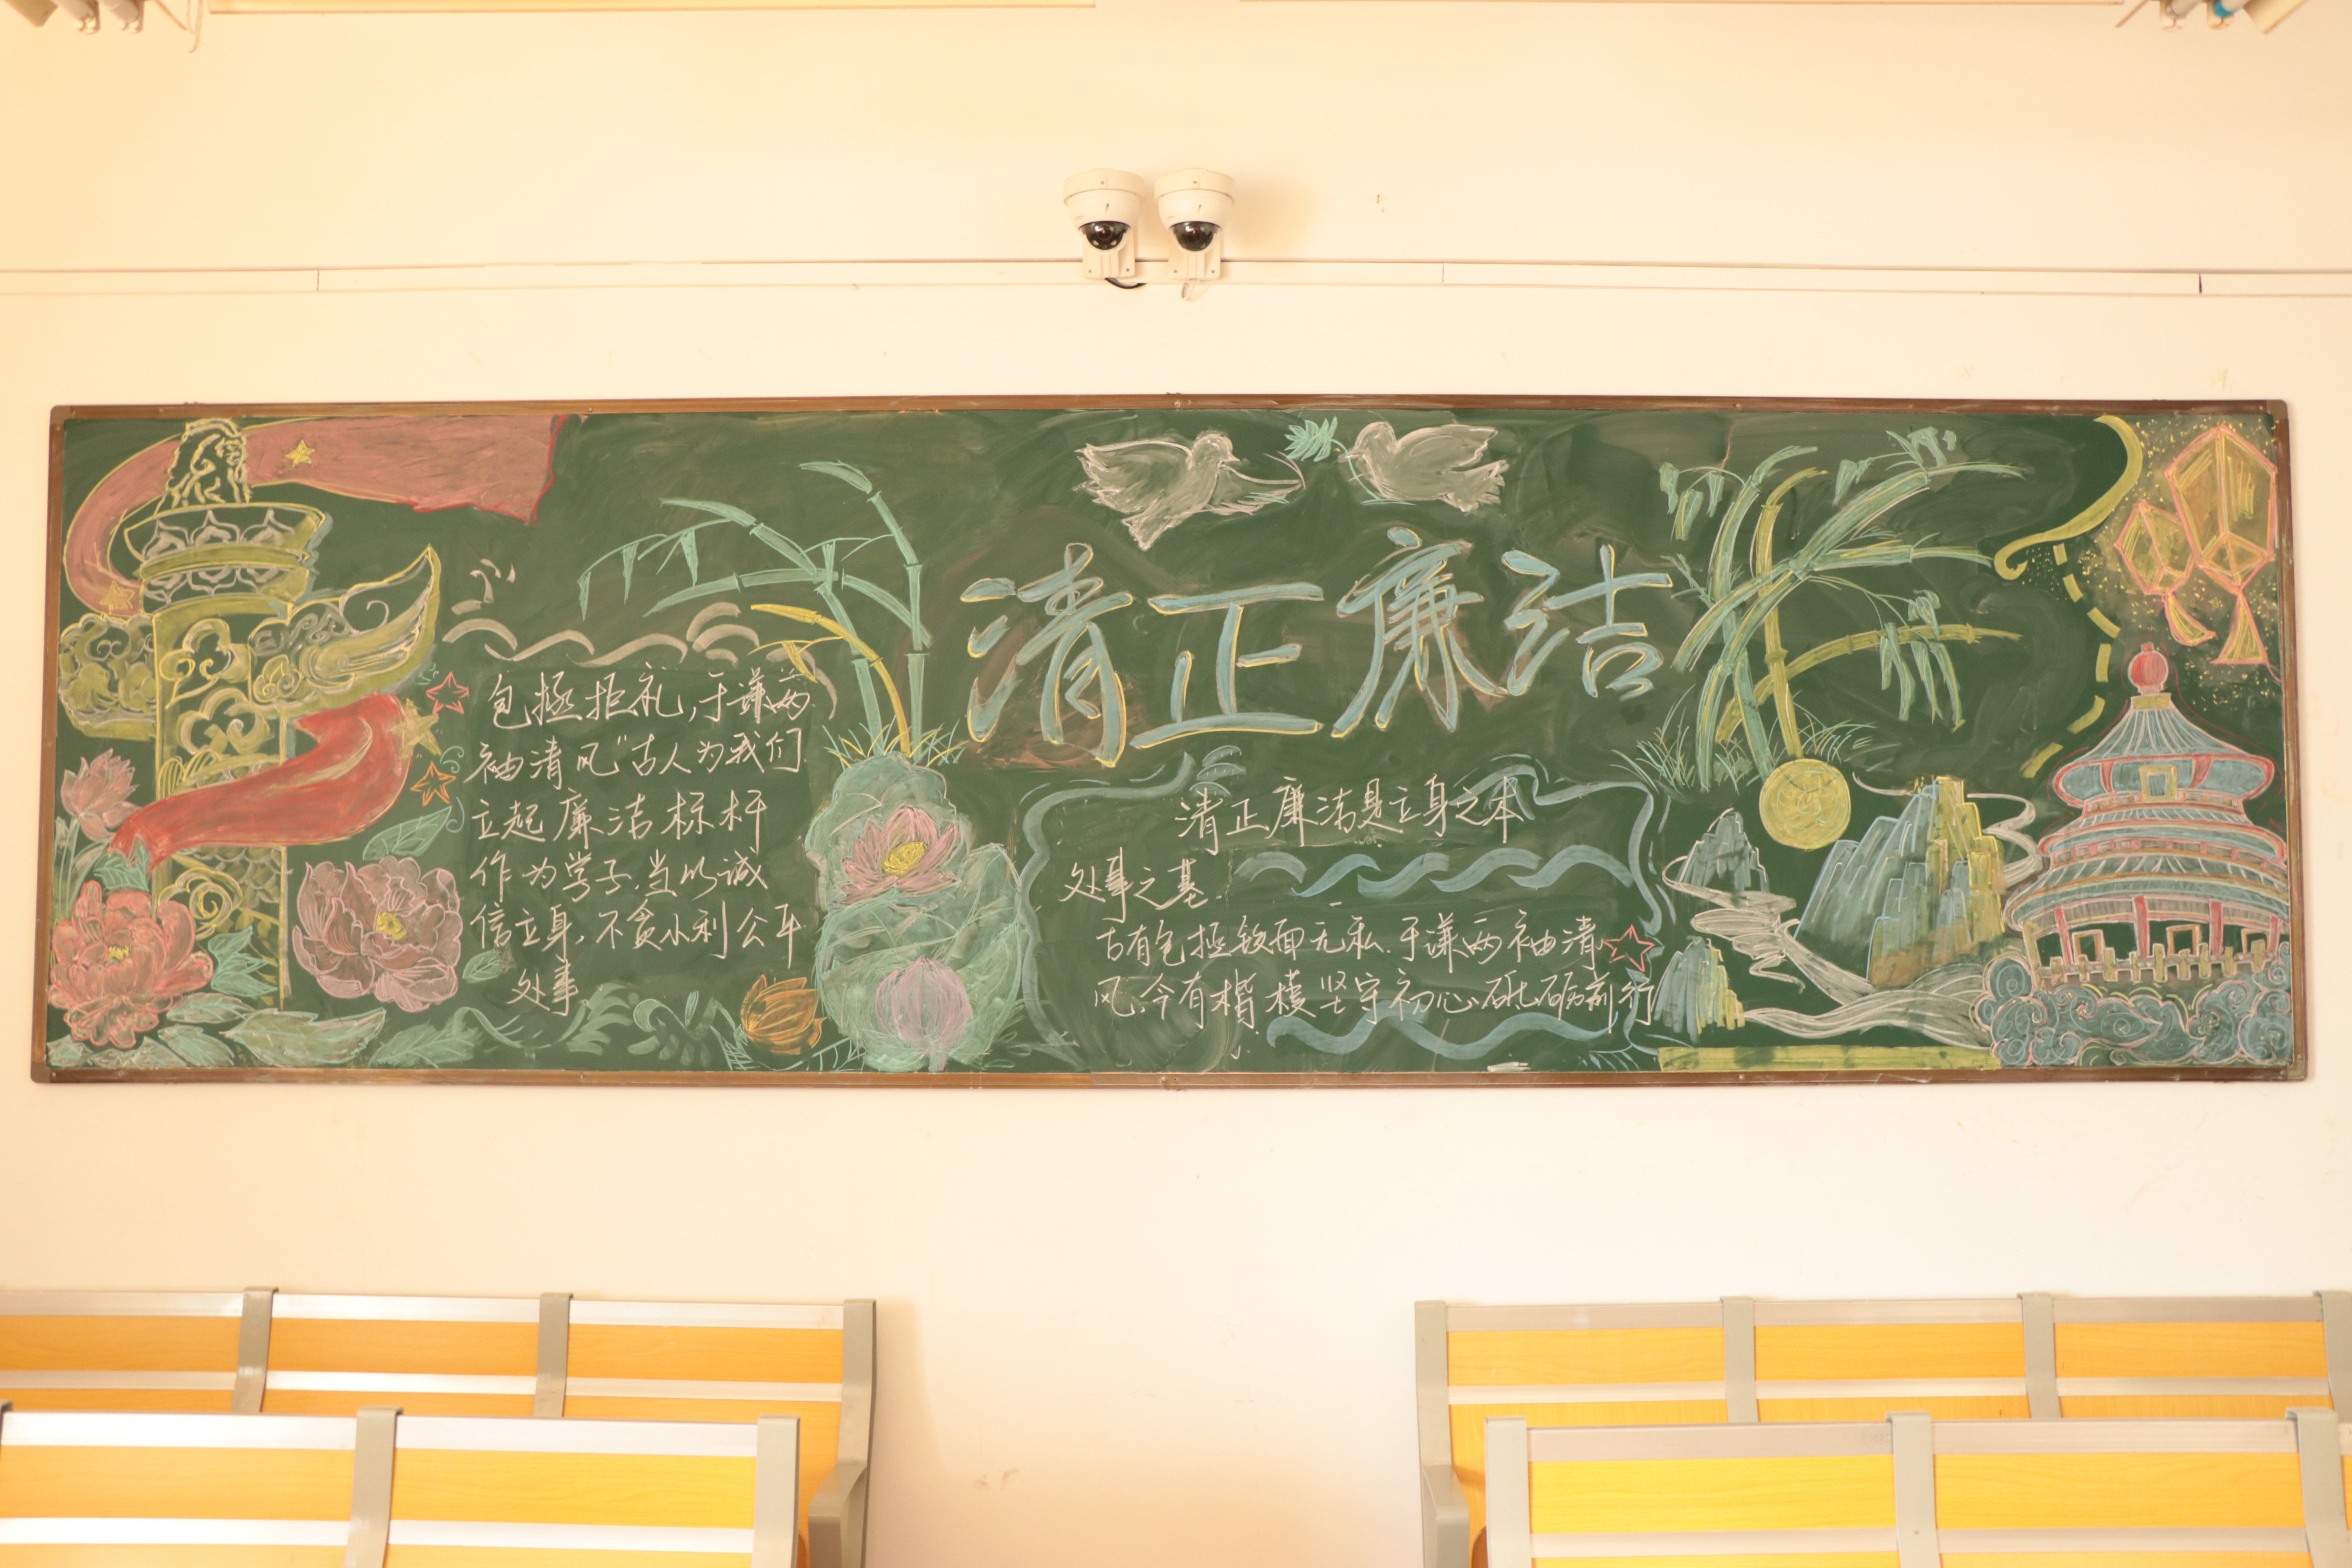 清正廉洁
包拯拒礼,于谦两
袖清风"古人为我们
立起廉洁标杆
作为学子,当以诚
信立身,不贪小利公平
处事
清正廉洁是立身之本
处事之基
古有包拯铁面无私.于谦两袖清
风,今有楷模坚守初心砥砺前行